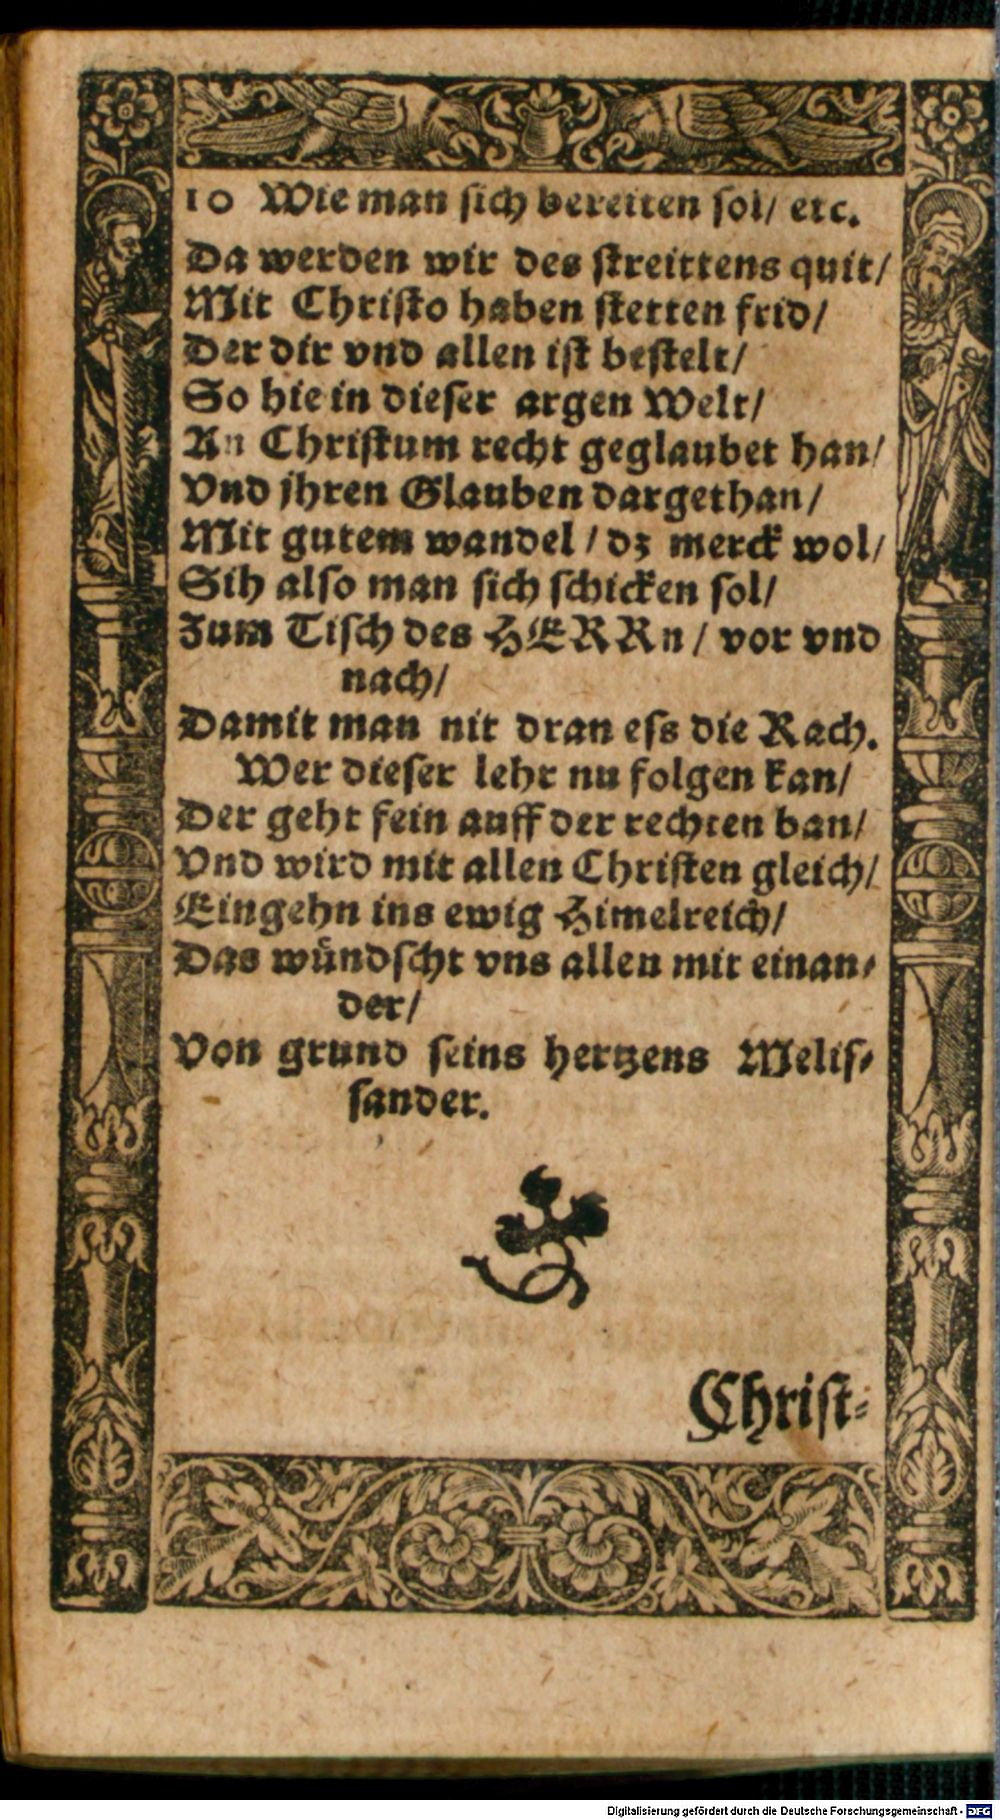 10 Wie man sich bereiten sol/ etc.
Da werden wir des streittens quit/
Mit Christo haben stetten frid/
Der dir vnd allen ist bestelt/
So hie in dieser argen Welt/
An Christum recht geglaubet han/
Vnd jhren Glauben dargethan/
Mit gutem wandel / dz merck wol/
Sih also man sich schicken sol/
Zum Tisch des HERRn / vor vnd
nach/
Damit man nit dran ess die Rach.
Wer dieser lehr nu folgen kan/
Der geht fein auff der rechten ban/
Vnd wird mit allen Christen gleich/
Eingehn ins ewig Himelreich/
Das wündscht vns allen mit einan-
der/
Von grund seins hertzens Melis-
sander.
Christ-
Digitalisierung gefördert durch die Deutsche Forschungsgemeinschaft - DFG